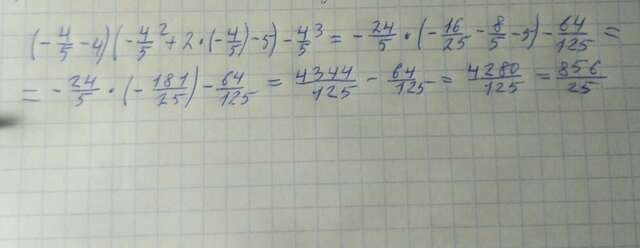 (-4/5 - 4)(-4/5² + 2·(-4/5) - 5) - 4/5³ = -24/5 · (-16/25 - 8/5 - 5) - 64/125 =
= -24/5 · (-181/25) - 64/125 = 4344/125 - 64/125 = 4280/125 = 856/25